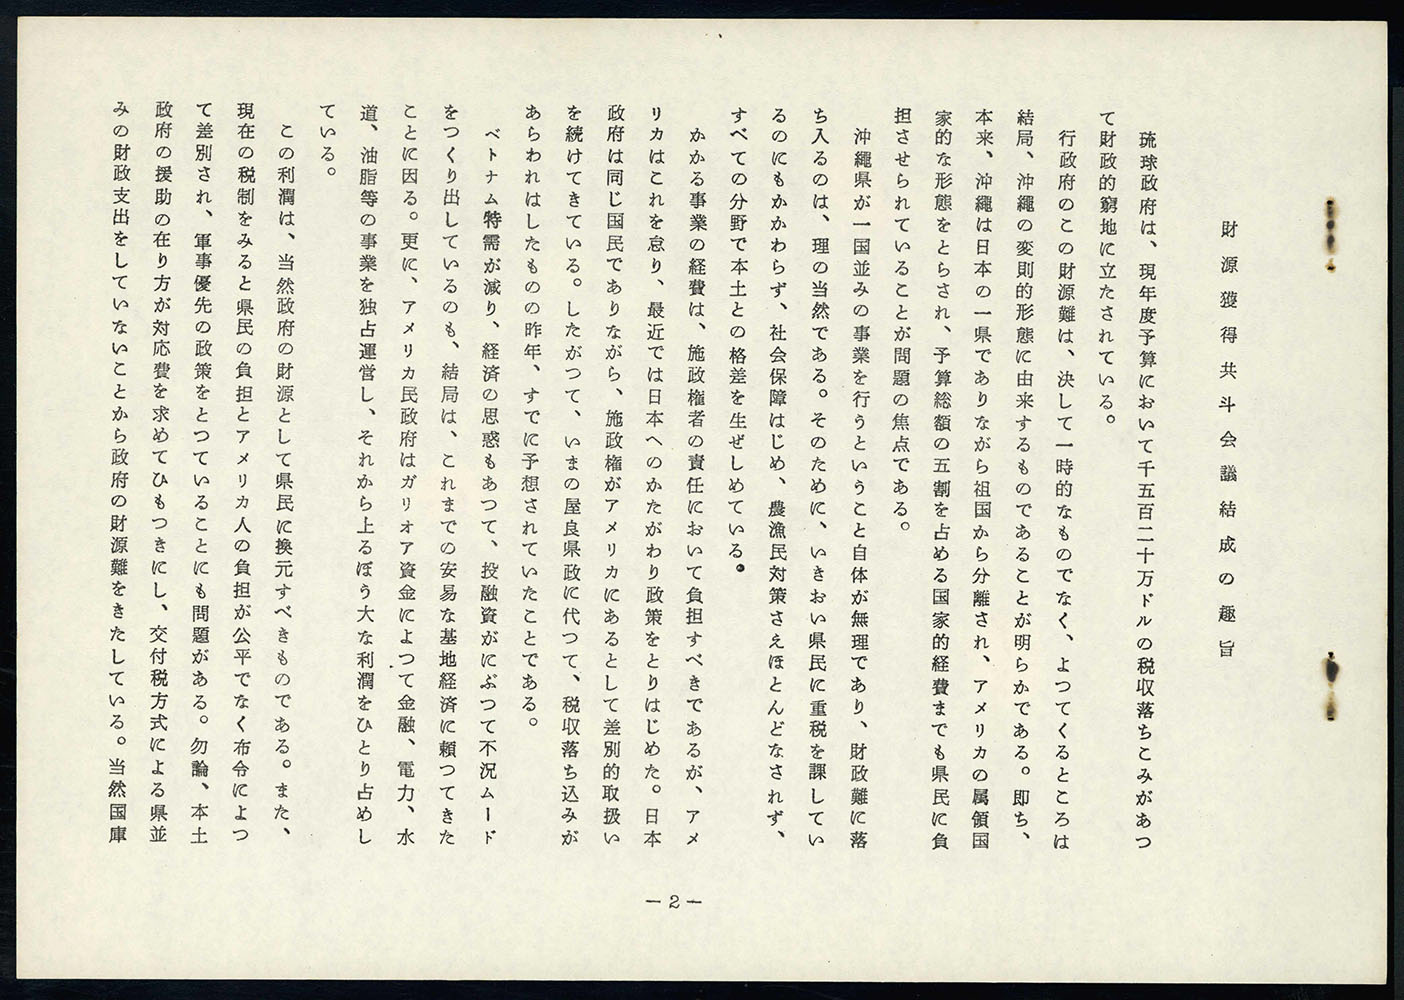 財源獲得共斗会議結成の趣旨
琉球政府は、現年度予算において千五百二十万ドルの税収落ちこみがあつ
て財政的窮地に立たされている。
行政府のこの財源難は、決して一時的なものでなく、よつてくるところは
結局、沖縄の変則的形態に由来するものであることが明らかである。即ち、
本来、沖縄は日本の一県でありながら祖国から分離され、アメリカの属領国
家的な形態をとらされ、予算総額の五割を占める国家的経費までも県民に負
担させられていることが問題の焦点である。
沖縄県が一国並みの事業を行うということ自体が無理であり、財政難に落
ち入るのは、理の当然である。そのために、いきおい県民に重税を課してい
るのにもかかわらず、社会保障はじめ、農漁民対策さえほとんどなされず、
すべての分野で本土との格差を生ぜしめている。
かかる事業の経費は、施政権者の責任において負担すべきであるが、アメ
リカはこれを怠り、最近では日本へのかたがわり政策をとりはじめた。日本
政府は同じ国民でありながら、施政権がアメリカにあるとして差別的取扱い
を続けてきている。したがつて、いまの屋良県政に代つて、税収落ち込みが
あらわれはしたものの昨年、すでに予想されていたことである。
ベトナム特需が減り、経済の思惑もあつて、投融資がにぶつて不況ムード
をつくり出しているのも、結局は、これまでの安易な基地経済に頼つてきた
ことに因る。更に、アメリカ民政府はガリオア資金によつて金融、電力、水
道、油脂等の事業を独占運営し、それから上るぼう大な利潤をひとり占めし
ている。
この利潤は、当然政府の財源として県民に換元すべきものである。また、
現在の税制をみると県民の負担とアメリカ人の負担が公平でなく布令によつ
て差別され、軍事優先の政策をとつていることにも問題がある。勿論、本土
政府の援助の在り方が対応費を求めてひもつきにし、交付税方式による県並
みの財政支出をしていないことから政府の財源難をきたしている。当然国庫
－2－